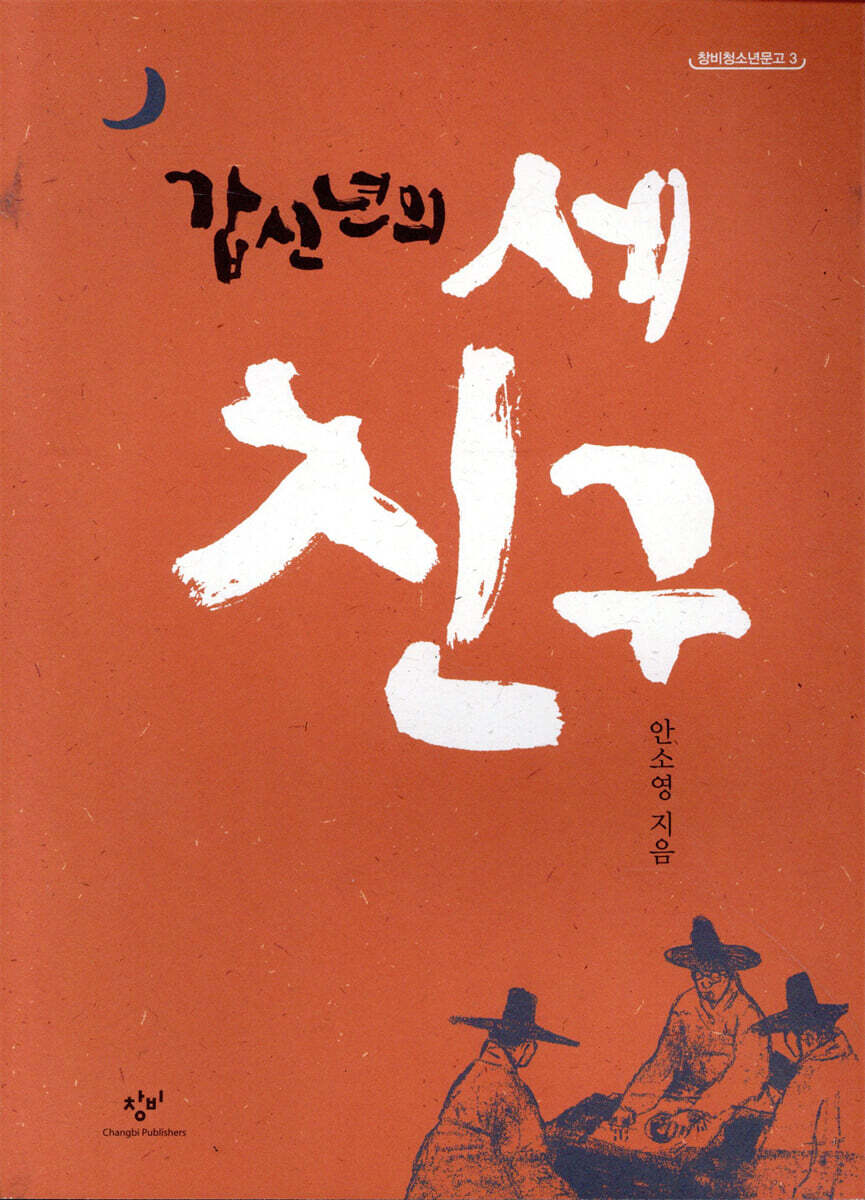 창비청소년문고 3
갑신년의
세
친구
안소영 지음
창비
Changbi Publishers